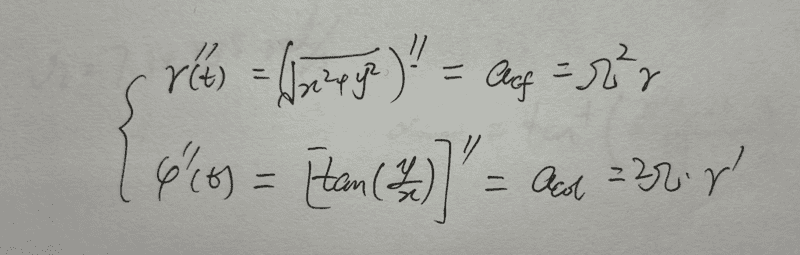 r''(t) = (√x²+y²)'' = a_cf = Ω² r
φ''(t) = [tan(y/x)]'' = a_col = 2Ω · r'